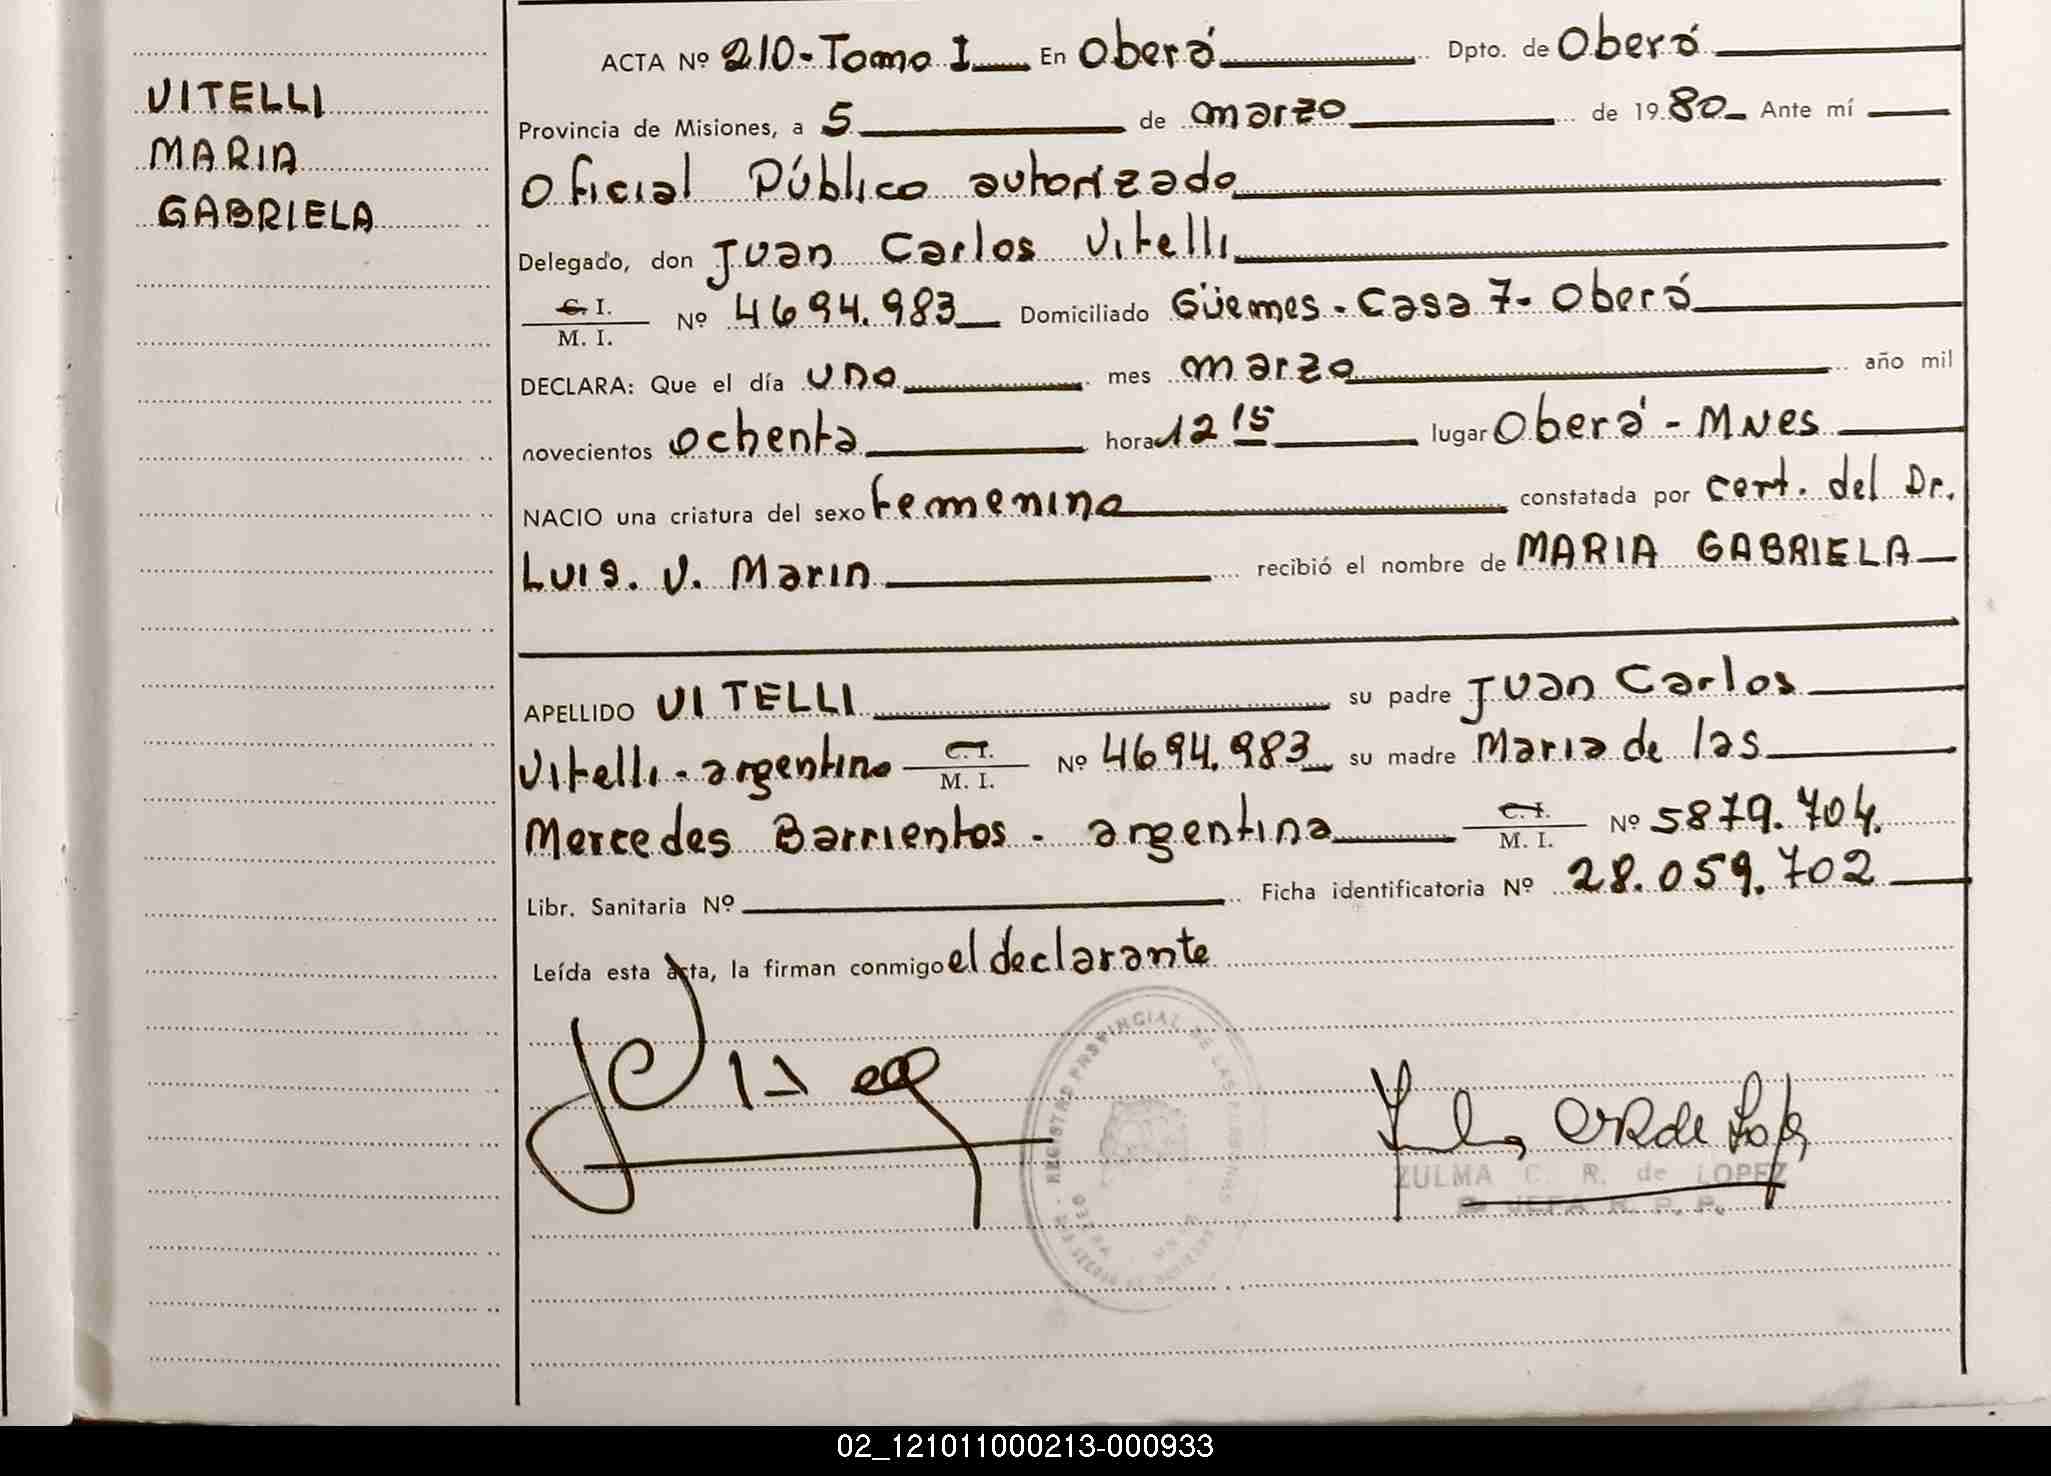 VITELLI
MARIA
GABRIELA
ACTA Nº 210-Tomo I En Oberá Dpto. de Oberá
Provincia de Misiones, a 5 de marzo de 1980 Ante mí
Oficial Público autorizado
Delegado, don Juan Carlos Vitelli
C. I.
M. I. Nº 4694.983 Domiciliado Güemes - Casa 7- Oberá
DECLARA: Que el día uno mes marzo año mil
novecientos ochenta hora 12 15 lugar Oberá - MNes
NACIO una criatura del sexo femenino constatada por cert. del Dr.
Luis. V. Marin recibió el nombre de MARIA GABRIELA
APELLIDO VITELLI su padre Juan Carlos
Vitelli - argentino C. I. M. I. Nº 4694.983 su madre Maria de las
Mercedes Barrientos - argentina C. I. M. I. Nº 5879.704.
Libr. Sanitaria Nº Ficha identificatoria Nº 28.059.702
Leída esta acta, la firman conmigo el declarante
REGISTRO PROVINCIAL DE LAS PERSONAS
OBERA
ZULMA C. R. de LOPEZ
JEFA R. P. P.
02_121011000213-000933